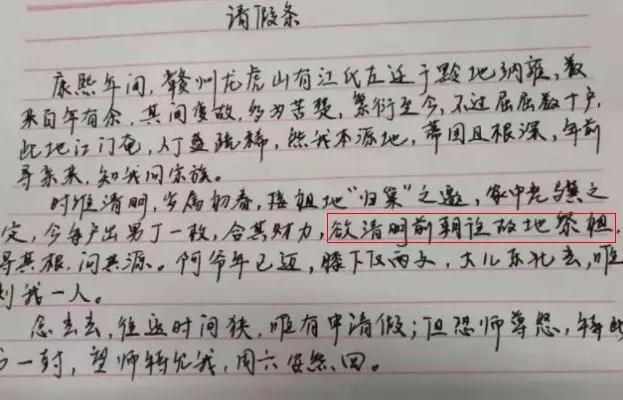 请假条
康熙年间,赣州龙虎山有江氏左迁于黔地纳雍,数
来百年有余,其间变故,多为苦楚,繁衍至今,不过屈屈数十户,
此地江门奄,人丁益疏稀,然我本源地,蒂固且根深,年前
寻亲来,知我同宗族。
时维清明,岁属初春,接祖地“归巢”之邀,家中老
定,今每户出男丁一枚,合其财力,欲清明前朝往故地祭祖,
寻其根,问其源。阿爷年已迈,膝下仅两丈,大儿东北去,唯
剩我一人。
念去去,往返时间狭,唯有申请假;但恐师尊怒,特此
一封,望师特允我,周六安然回。